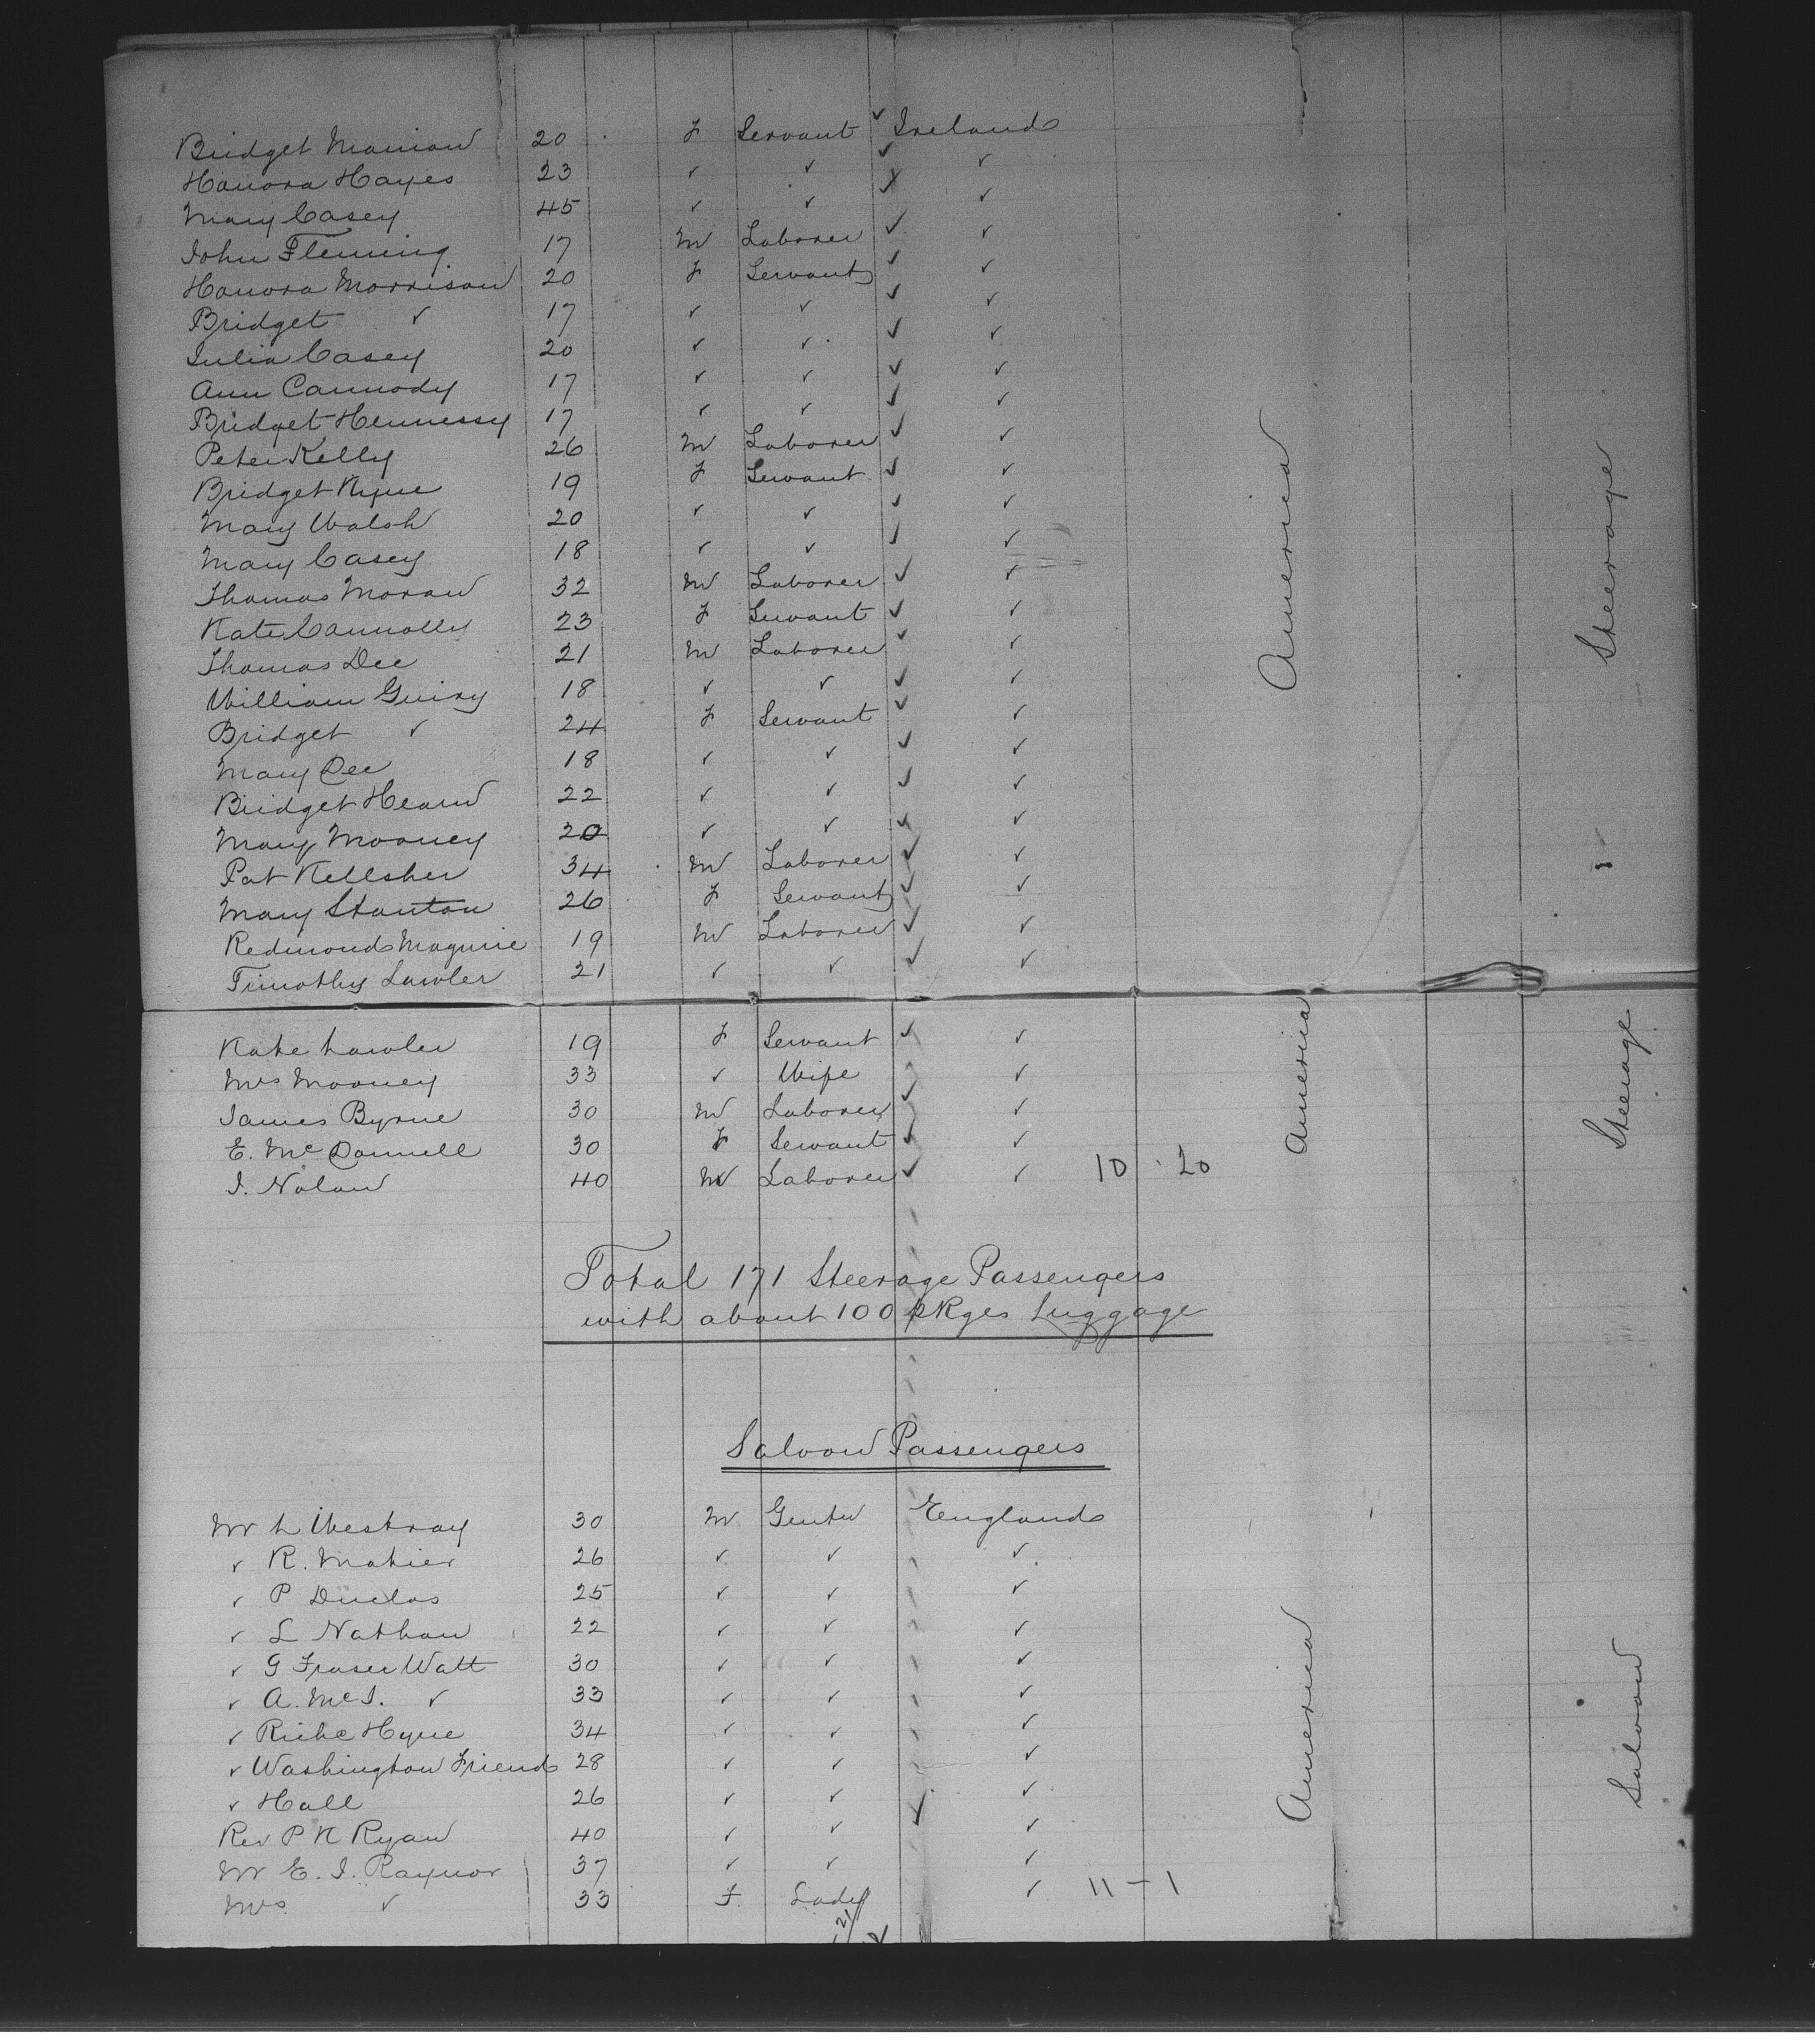 Bridget Manion 20 F Servant ✓ Ireland
Hanora Hayes 23 ✓ ✓ ✓ ✓
Mary Casey 45 ✓ ✓ ✓ ✓
John Fleming 17 M Laborer ✓ ✓
Hanora Morrison 20 F Servant ✓ ✓
Bridget ✓ 17 ✓ ✓ ✓ ✓
Julia Casey 20 ✓ ✓ ✓ ✓
Ann Cannody 17 ✓ ✓ ✓ ✓
Bridget Hennessy 17 ✓ ✓ ✓ ✓
Peter Kelly 26 M Laborer ✓ ✓
Bridget Kyne 19 F Servant ✓ ✓
Mary Walsh 20 ✓ ✓ ✓ ✓
Mary Casey 18 ✓ ✓ ✓ ✓
Thomas Moran 32 M Laborer ✓ ✓
Kate Connolly 23 F Servant ✓ ✓
Thomas Dee 21 M Laborer ✓ ✓
William Guiry 18 ✓ ✓ ✓ ✓
Bridget ✓ 24 F Servant ✓ ✓
Mary Dee 18 ✓ ✓ ✓ ✓
Bridget Hearn 22 ✓ ✓ ✓ ✓
Mary Mooney 20 ✓ ✓ ✓ ✓
Pat Kellsher 34 M Laborer ✓ ✓
Mary Stanton 26 F Servant ✓ ✓
Redmond Maguire 19 M Laborer ✓ ✓
Timothy Lawler 21 ✓ ✓ ✓ ✓
America
Steerage
Kate Lawler 19 F Servant ✓ ✓
Mrs Mooney 33 ✓ Wife ✓
James Byrne 30 M Laborer ✓ ✓
E. McDonnell 30 F Servant ✓ ✓
J. Nolan 40 M Laborer ✓ ✓ 10 20
America
Steerage
Total 171 Steerage Passengers
with about 100 pkges Luggage
Saloon Passengers
Mr L Westray 30 M Gentn England
✓ R. Mahier 26 ✓ ✓ ✓
✓ P Duclos 25 ✓ ✓ ✓
✓ L Nathan 22 ✓ ✓ ✓
✓ G Fraser Watt 30 ✓ ✓ ✓
✓ A. McJ. ✓ 33 ✓ ✓ ✓
✓ Hyne 34 ✓ ✓ ✓
✓ Washington Friend 28 ✓ ✓ ✓
✓ Hall 26 ✓ ✓ ✓
Rev P K Ryan 40 ✓ ✓ ✓ ✓
Mr E. J. Raynor 37 ✓ ✓ ✓
Mrs ✓ 33 F Lady ✓ 11 - 1
America
Saloon